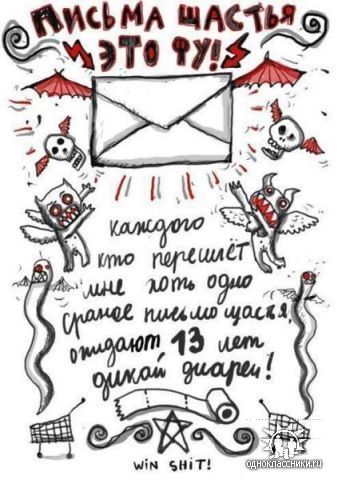 ПИСЬМА ЩАСТЬЯ
ЭТО ФУ!
каждого
кто перешлёт
мне хоть одно
сраное письмо щастья,
ожидают 13 лет
дикой диареи!
WiN SHiT!
одноклассники.ru